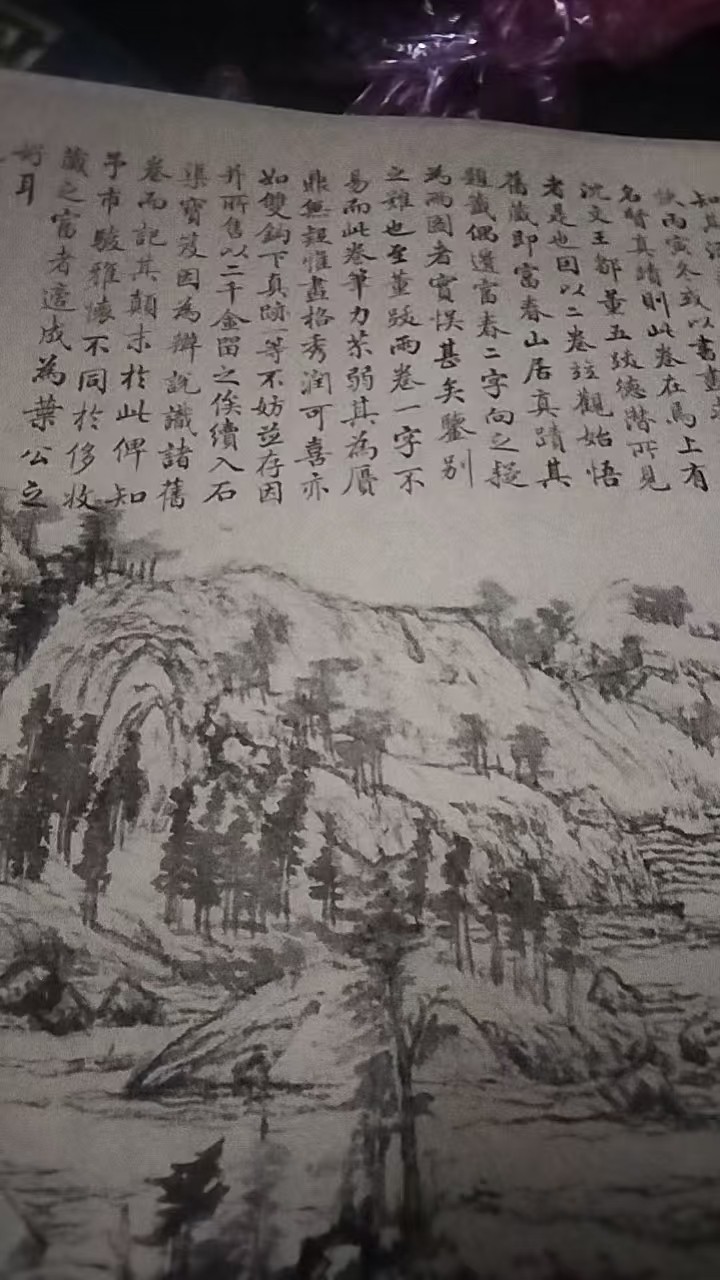 快丙寅冬或以書畫求
名賢真蹟則此卷在馬上有
沈文王鄒董五跋德潛所見
者是也因以二卷並觀始悟
舊藏即富春山居真蹟其
題籤偶遺富春二字向之疑
為兩圖者實悞甚矣鑒別
之難也至董跋兩卷一字不
易而此卷筆力苶弱其為贗
鼎無疑惟畫格秀潤可喜亦
如雙鈎下真跡一等不妨並存因
并所售以二千金留之俟續入石
渠寶笈因為辯說識諸舊
卷而記其顛末於此俾知
予市駿雅懷不同於侈收
藏之富者適成為葉公之
好耳